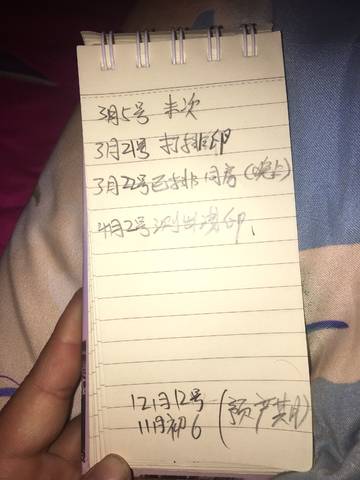 3月5号 末次
3月21号 打排卵
3月22号已排 同房(晚上)
4月2号测出浅印.
12月12号
11月初6 (预产期)